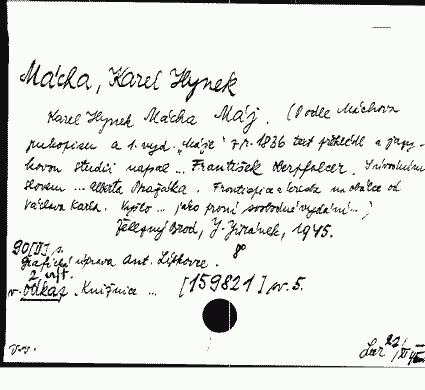 Mácha, Karel Hynek
Karel Hynek Mácha Máj. (Podle Máchova
rukopisu a 1. vyd. „Máje" z r. 1836 text přehlédl a jazy-
kovou studii napsal ... František Kerpfolcer. S úvodním
slovem ... Alberta Pražáka. Frontispice a kresba na obálce od
Václava Karla. Vyšlo ... jako první svobodné vydání ...)
Železný Brod, J. Jiránek, 1945.
90 [II] s. 8°
Grafická úprava Ant. Liškovec.
2 výt.
v. odkaz. Knižnice ... [159821] sv. 5.